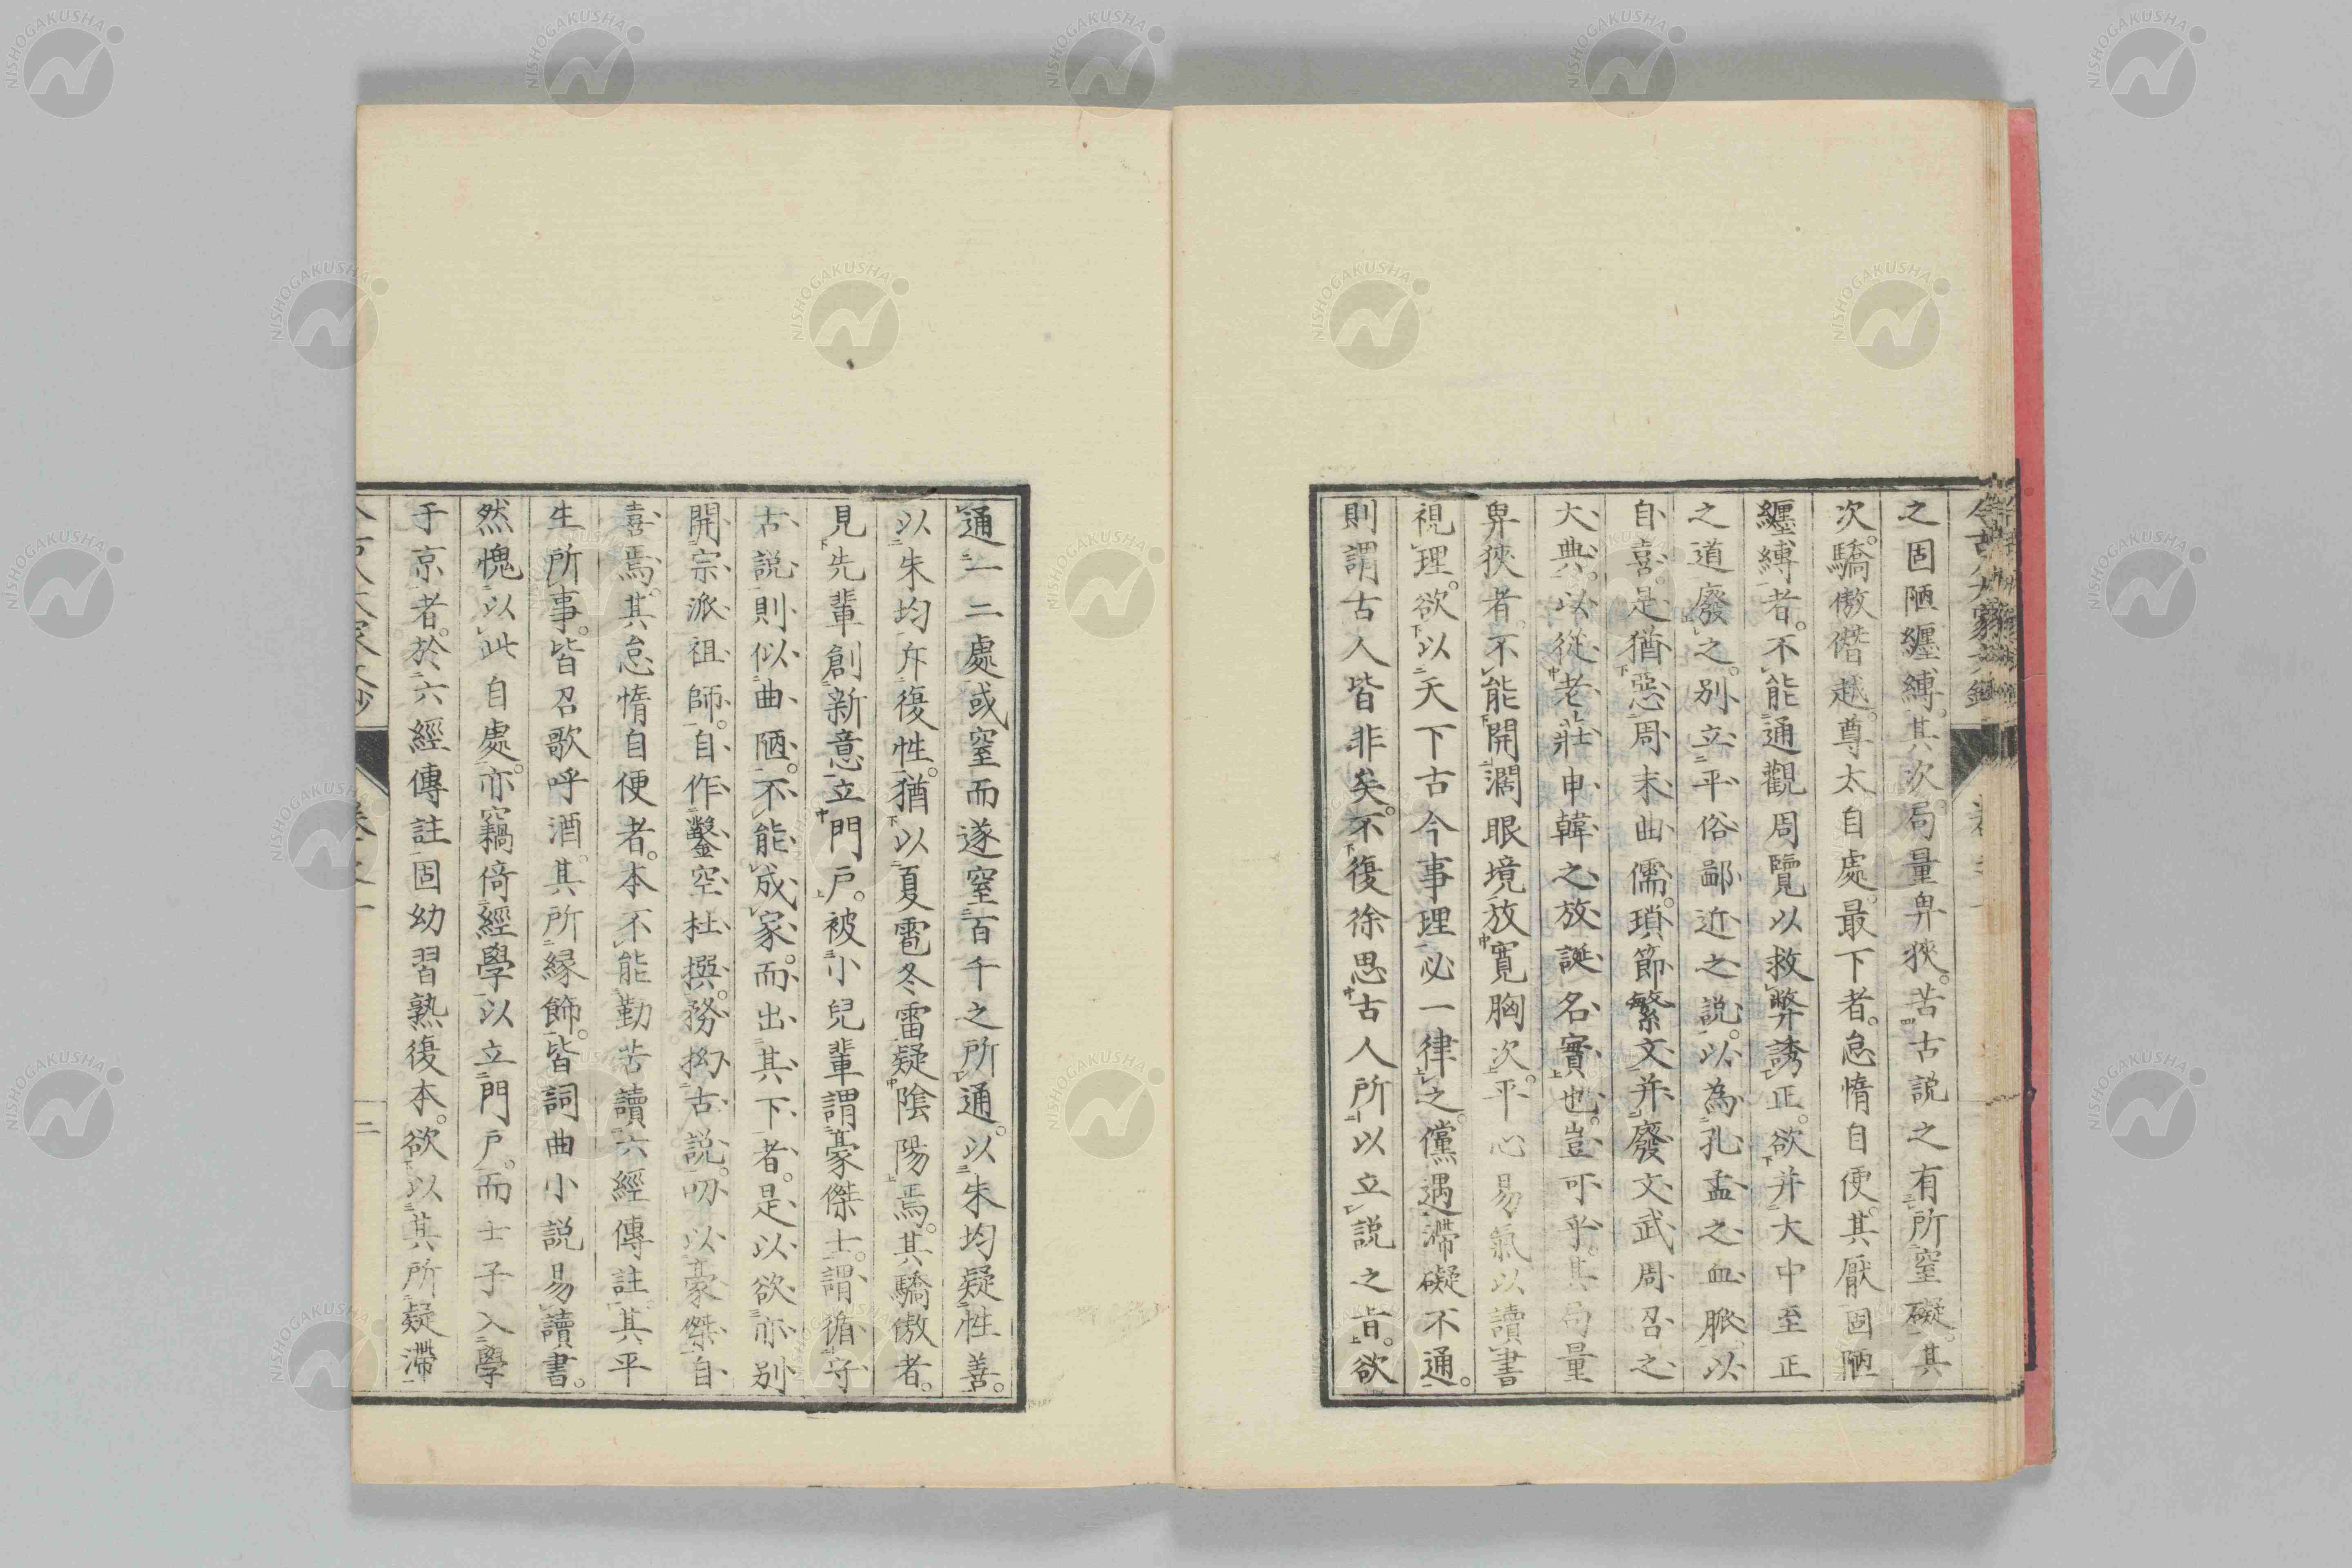 之固陋纏縛。其次局量卑狹。苦古説之有所窒礙。其
次。驕傲僭越。尊太自處。最下者。怠惰自便。其厭固陋
纏縛者。不能通觀周覽以救弊誘正。欲并大中至正
之道廢之。別立平俗鄙近之説。以為孔孟之血脈以
自喜。是猶惡周末曲儒。瑣節繁文并廢文武周召之
大典。以從老莊申韓之放誕名實也。豈可乎。其局量
卑狹者。不能開濶眼境放寛胸次。平心易氣以讀書
視理。欲以天下古今事理必一律之。儻遇滯礙不通。
則謂古人皆非矣。不復徐思古人所以立説之旨。欲
通一二處或窒而遂窒百千之所通。以朱均疑性善。
以朱均斥復性。猶以夏雹冬雷疑陰陽焉。其驕傲者。
見先輩創新意立門戸。被小兒輩謂豪傑士。謂循守
古説則似曲陋。不能成家。而出其下者。是以欲亦別
開宗派祖師。自作鑿空杜撰。務拗古説。叨以豪傑自
喜焉。其怠惰自便者。本不能勤苦讀六經傳註。其平
生所事。皆召歌呼酒。其所縁飾。皆詞曲小説易讀書。
然愧以此自處。亦竊倚經學以立門戸。而士子入學
于京者。於六經傳註固幼習熟復本。欲以其所疑滯
NISHOGAKUSHA